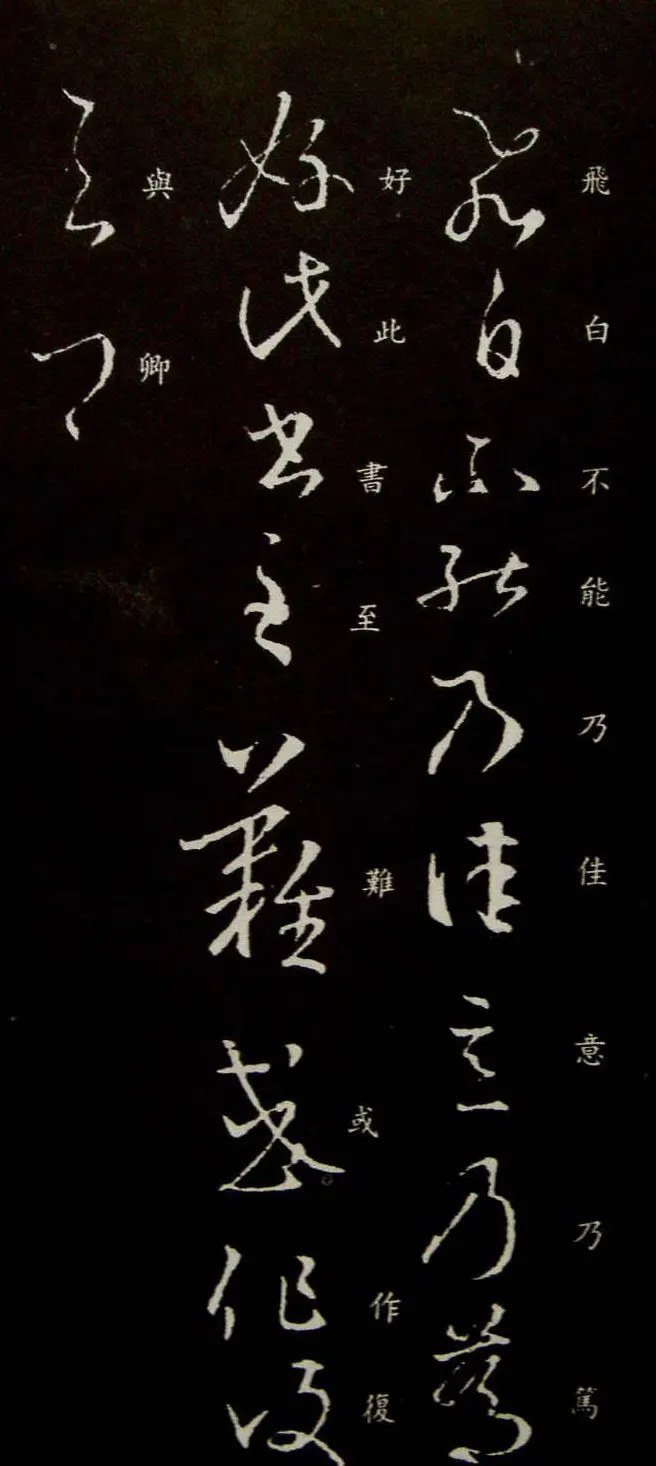 飛白不能乃佳意乃篤
好此書至難或作復
與卿